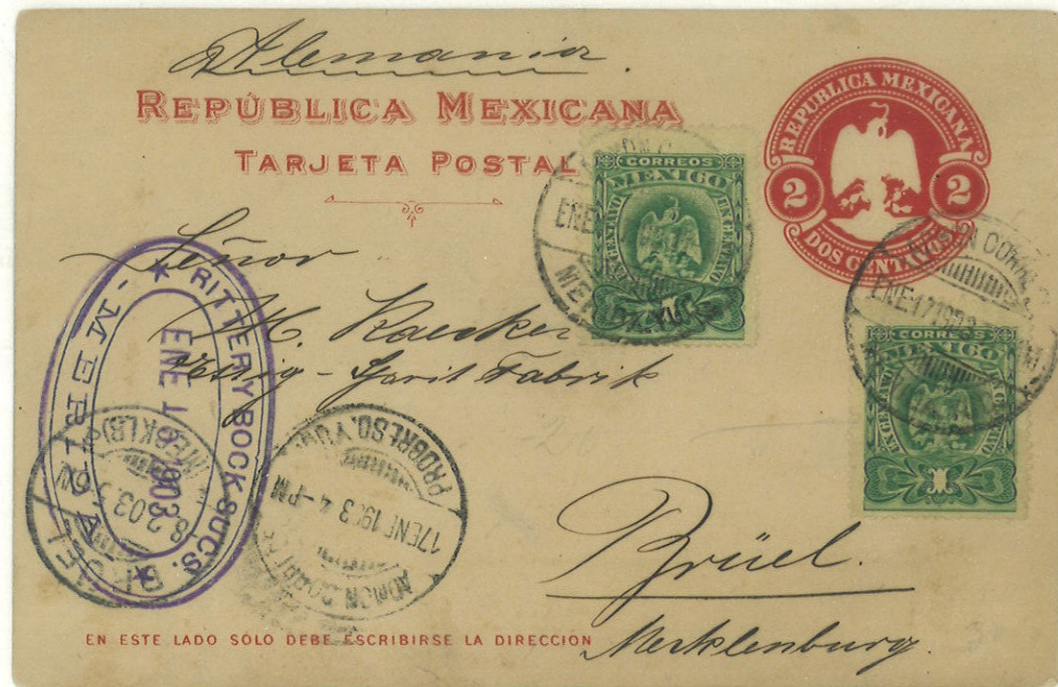 Alemania.
REPÚBLICA MEXICANA
TARJETA POSTAL
REPUBLICA MEXICANA
2 2
DOS CENTAVOS
CORREOS
MEXICO
UN CENTAVO UN CENTAVO
1
CORREOS
MEXICO
UN CENTAVO UN CENTAVO
1
ENE 17 190
Señor
M. Kaecker
Essig - Sprit Fabrik
RITTER Y BOCK SUCS.
ENE 16 1903
-MERIDA-
BRUEL
(MECKLB)
8.2.03.
PROGRESO. YUC
17 ENE 1903 4-PM
Brüel.
Mecklenburg.
EN ESTE LADO SÓLO DEBE ESCRIBIRSE LA DIRECCIÓN